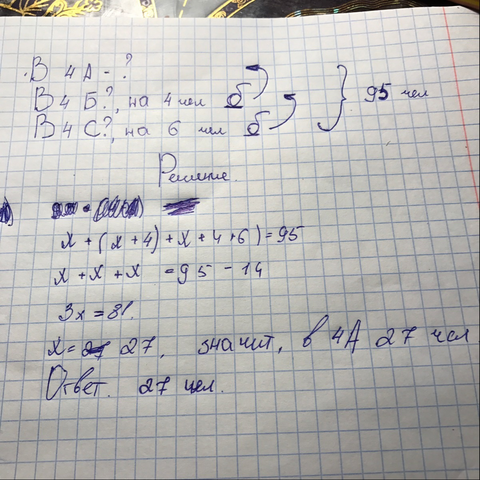 В 4 А - ?
В 4 Б?, на 4 чел б
В 4 С?, на 6 чел б } 95 чел
Решение.
х + (х + 4) + х + 4 + 6) = 95
х + х + х = 95 - 14
3х = 81.
х = 27, значит, в 4А 27 чел
Ответ. 27 чел.